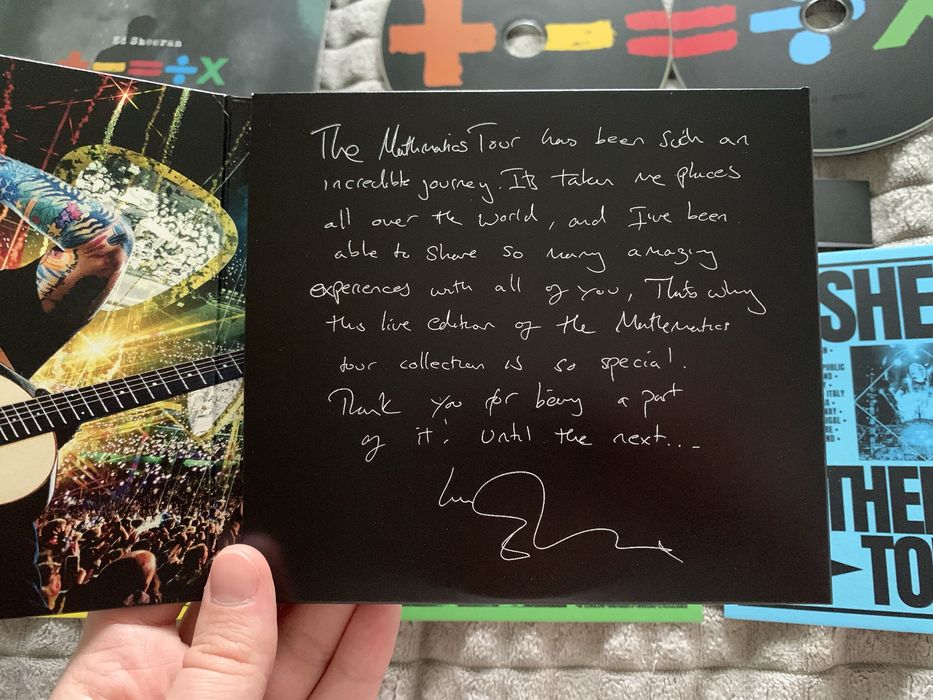 Ed Sheeran
+ - = ÷ x
+ - =
÷ x
The Mathematics Tour has been such an
incredible journey. It's taken me places
all over the world, and I've been
able to share so many amazing
experiences with all of you, That's why
this live edition of the Mathematics
tour collection is so special!
Thank you for being a part
of it! Until the next...
SHE
PUBLIC
ITALY
THE
TO